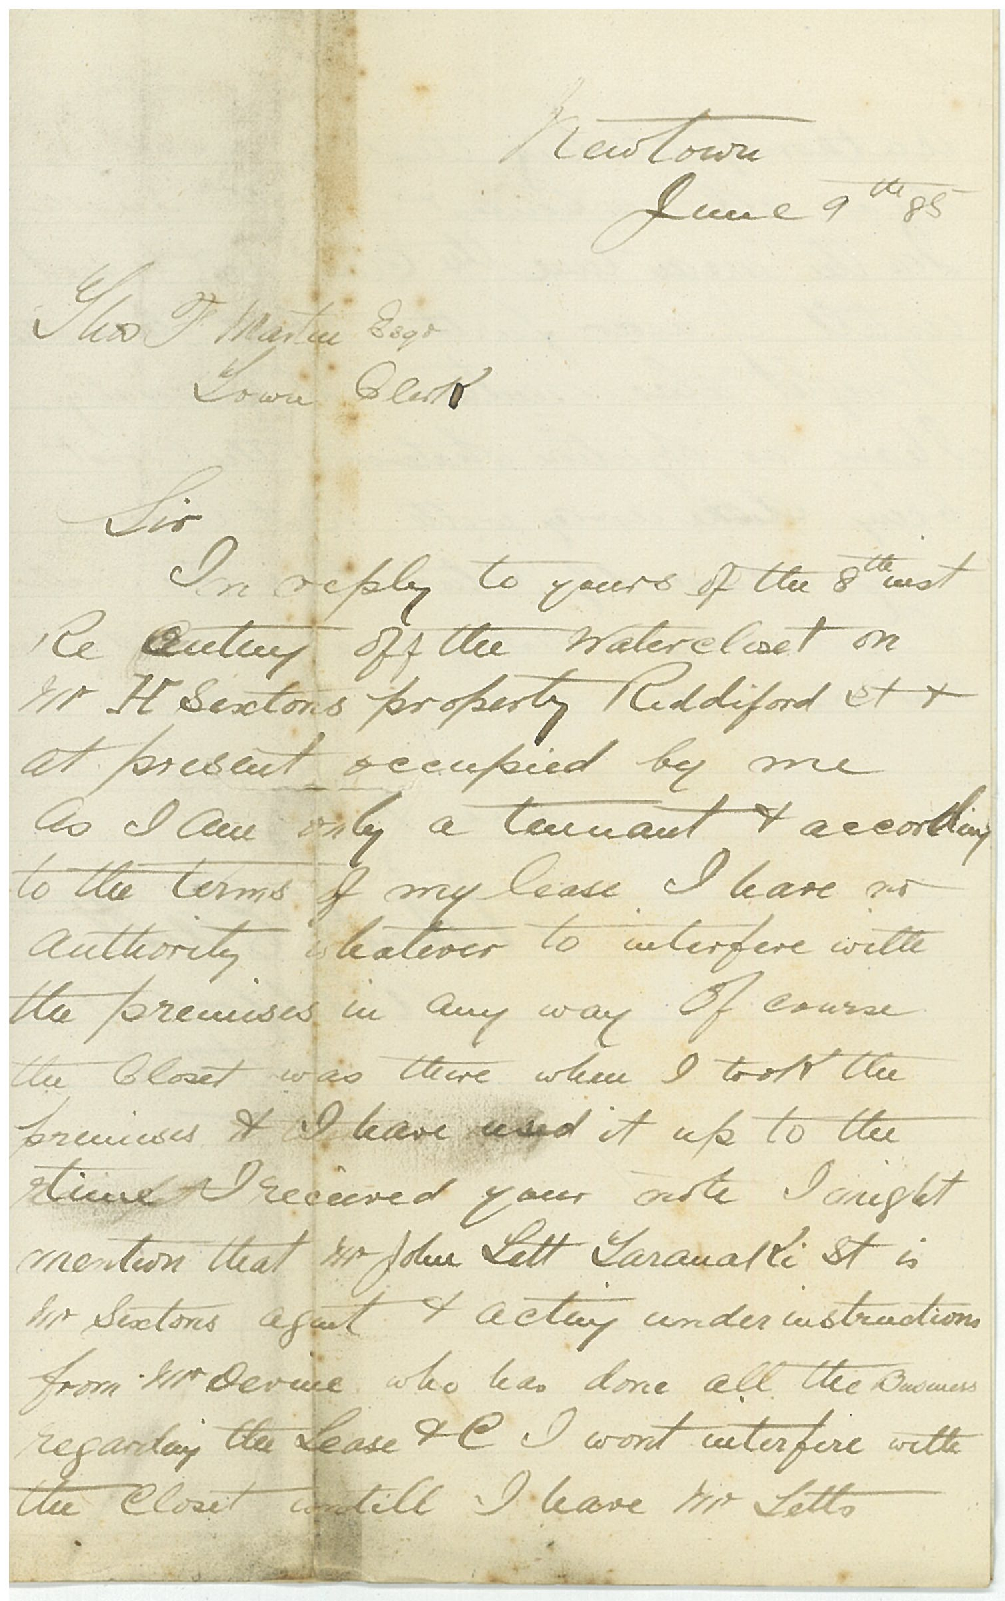 Newtown
June 9th 85
Thos F Martin Esqr
Town Clerk
Sir
In reply to yours of the 8th inst
Re Cuting off the Watercloset on
Mr H Sextons property Riddiford St +
at present occupied by me
As I am only a tennant & according
to the terms of my lease I have no
Authority whatever to interfere with
the premises in any way Of course
the Closet was there when I took the
premises & I have used it up to the
time I received your note I might
mention that Mr John Lett Taranaki St is
Mr Sextons agent & acting under instructions
from Mr Devine who has done all the Business
regarding the Lease & C I wont interfere with
the Closet untill I have Mr Letts